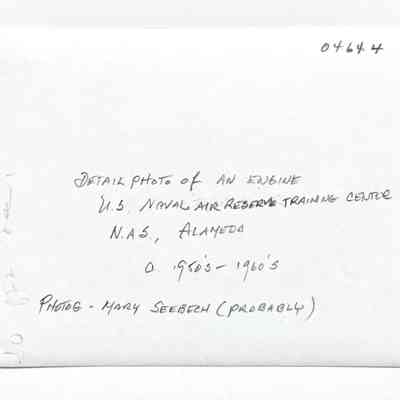 04644
DETAIL PHOTO of AN ENGINE
U.S. NAVAL AIR RESERVE TRAINING CENTER
N.A.S., ALAMEDA
1950's - 1960's
PHOTOG - MARY SEEBECH (PROBABLY)